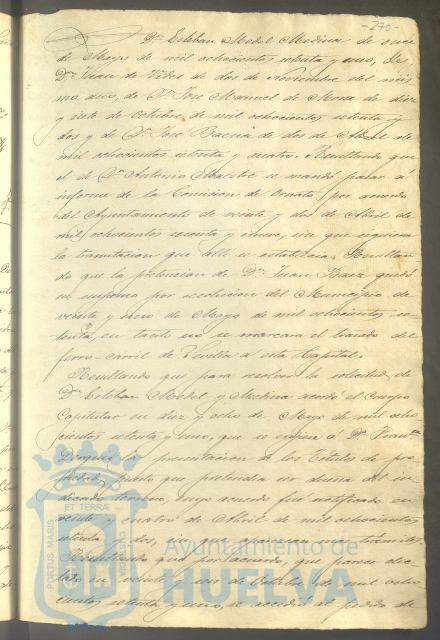 -270-
Dn. Esteban Medel Medina de once
de Mayo de mil ochocientos setenta y uno, de
Dn. Juan de Vides de dos de Noviembre del mis-
mo año, de Dn. José Manuel de Mora de diez
y siete de Octubre de mil ochocientos setenta y
dos y de Dn. José Baena de dos de Abril de
mil ochocientos setenta y cuatro. Resultando que
el de Dn. Antonio se mandó pasar á
informe de la Comision de Ornato, por acuerdo
del Ayuntamiento de veinte y dos de Abril de
mil ochocientos sesenta y nueve, sin que siguiera
la tramitacion que allí se establecia. Resultan-
do que la pretension de Dn. Juan Baez quedó
en suspenso por resolucion del Municipio de
veinte y uno de Mayo de mil ochocientos se-
tenta, en tanto no se marcara el trazado del
ferro-carril de Sevilla a esta Capital.
Resultando que para resolver la solicitud de
Dn. Esteban Medel y Medina acordó el Cuerpo
Capitular en diez y ocho de Mayo de mil ocho-
cientos setenta y uno, que se á Dn. Franco.
la presentacion de los Titulos de pro-
piedad, puesto que pretendia ser dueña del in-
dicado terreno, cuyo acuerdo fué notificado en
veinte y cuatro de Abril de mil ochocientos
setenta y dos, sin que aparezcan mas trámites.
Resultando que por acuerdo, que parece dic-
tado en veinte y seis de Octubre de mil ocho-
cientos setenta y uno, se accedió al pedido de
PORTUS MARIS
ET TERRAE
CUSTODIA
Ayuntamiento de
HUELVA